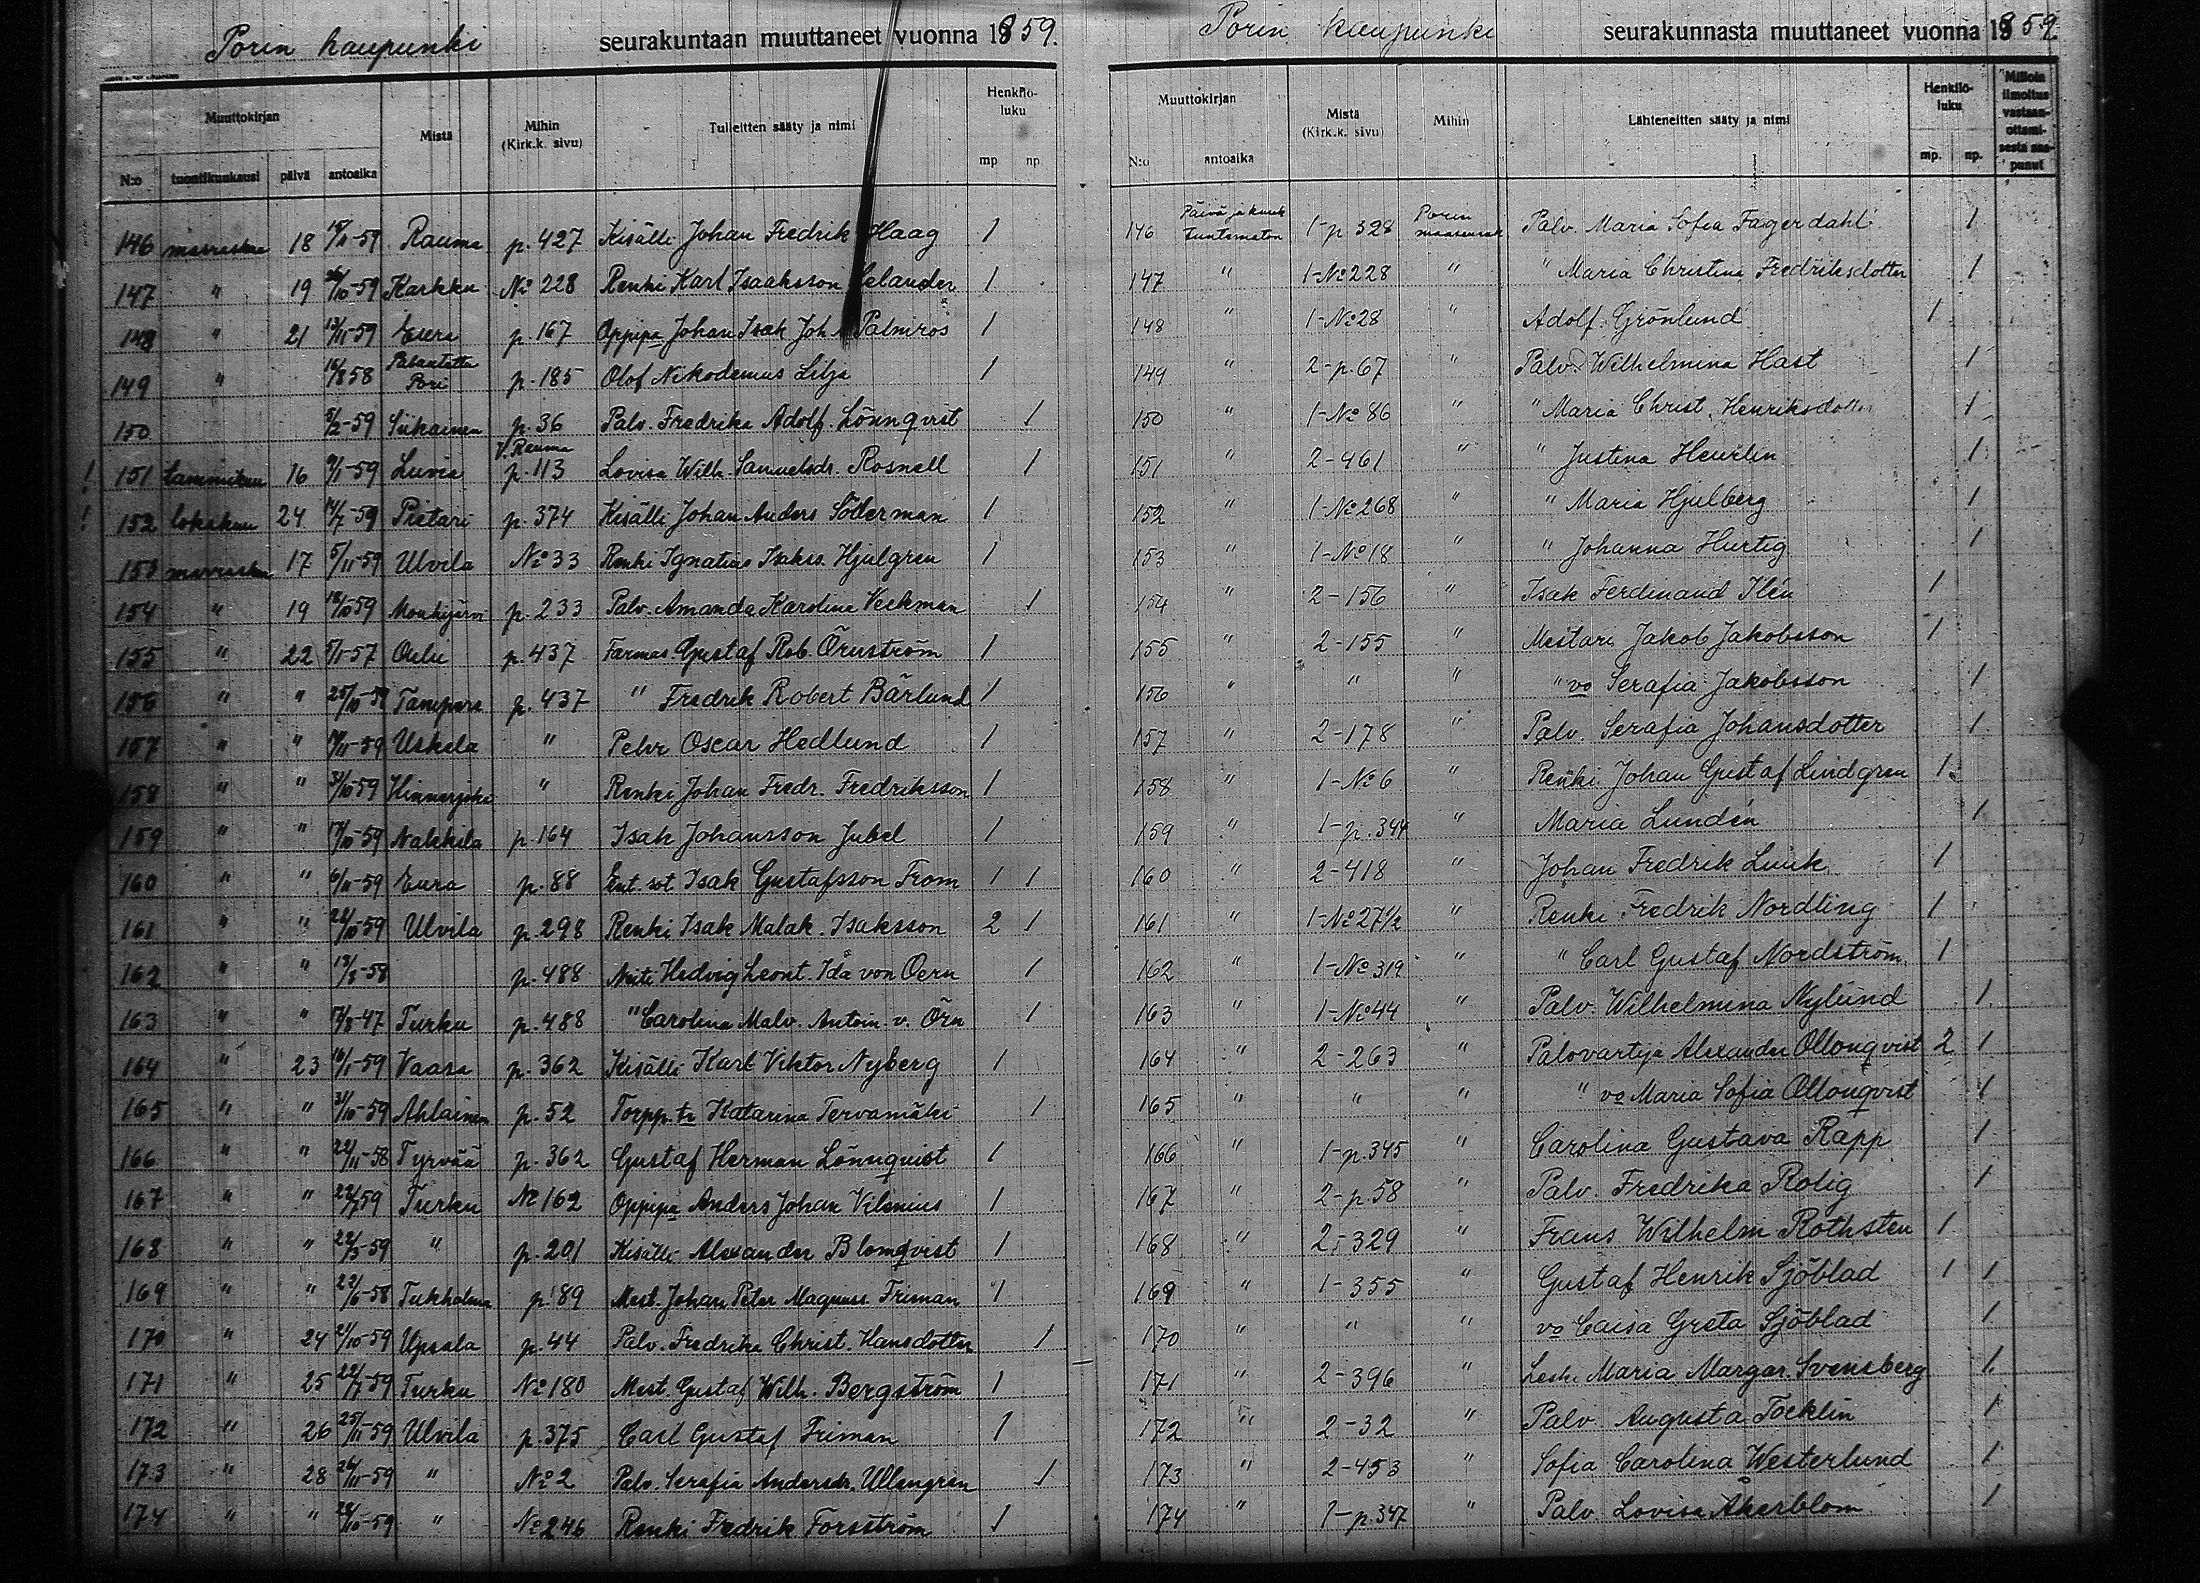 Porin kaupunki seurakuntaan muuttaneet vuonna 1859.
Muuttokirjan Mistä Mihin (Kirk.k. sivu) Tulleitten sääty ja nimi Henkilö-luku
N:o tuontikuukausi päivä antoaika mp np.
146 marraskuu 18 18/11-59 Rauma p. 427 Kisälli Johan Fredrik Haag 1
147 " 19 /10-59 Karkku No 228 Renki Karl Isaaksson Selander 1
148 " 21 13/11-59 Eura p. 167 Oppipa Johan Isak Joh. Palmros 1
149 " 16/8 58 Palautettu Pori p. 185 Olof Nikodemus Lilja 1
150 5/2-59 Siikainen p. 36 Palv. Fredrika Adolf. Lönnqvist 1
! 151 tammikuu 16 9/1-59 Luvia V. Rauma p. 113 Lovisa Wilh. Samuelsdr. Rosnell 1
! 152 lokakuu 24 14/7-59 Pietari p. 374 Kisälli Johan Anders Söderman 1
153 marraskuu 17 5/11-59 Ulvila No 33 Renki Ignatius Isakss. Hjulgren 1
154 " 19 18/10 59 Mouhijärvi p. 233 Palv. Amanda Karolina Veckman 1
155 " 22 5/1-57 Oulu p. 437 Farmas Gustaf Rob. Örnström 1
156 " " 25/10-59 Tampere p. 437 " Fredrik Robert Bärlund 1
157 " " /11-59 Uskela " Pelvr Oscar Hedlund 1
158 " " 3/10 59 Hinnerjoki " Renki Johan Fredr. Fredriksson 1
159 " " 17/10-59 Nakkila p. 164 Isak Johansson Jubel 1
160 " " 6/11-59 Eura p. 88 Ent. sot Isak Gustafsson From 1 1
161 " " 22/10-59 Ulvila p. 298 Renki Isak Malak. Isaksson 2 1
162 " " 13/8-58 p. 488 Neiti Hedvig Leont. Ida von Oern 1
163 " " 17/8-47 Turku p. 488 " Carolina Malv. Antoin. v. Örn 1
164 " 23 16/1-59 Vaasa p. 362 Kisälli Karl Viktor Nyberg 1
165 " " 31/10-59 Ahlainen p. 52 Torpp. tr Katarina Tervamäki 1
166 " " 22/11-58 Tyrvää p. 362 Gustaf Herman Lönnquist 1
167 " " 22/7 59 Turku No 162 Oppipa Anders Johan Vilenius 1
168 " " 22/3-59 " p. 201 Kisälli Alexander Blomqvist 1
169 " " 22/6-58 Tukholma p. 89 Mest. Johan Peter Magnuss. Friman 1
170 " 24 21/10-59 Upsala p. 44 Palv. Fredrika Christ. Hansdotter 1
171 " 25 22/7-59 Turku No 180 Mest. Gustaf Wilh. Bergström 1
172 " 26 25/11-59 Ulvila p. 375 Carl Gustaf Friman 1
173 " 28 26/11-59 " No 2 Palv. Serafia Andersdr. Ullengren 1
174 " " 28/10-59 " No 246 Renki Fredrik Forsström 1
Porin kaupunki seurakunnasta muuttaneet vuonna 1859
Muuttokirjan Mistä (Kirk.k. sivu) Mihin Lähteneitten sääty ja nimi Henkilö-luku Milloin ilmoitus vastaan-ottami-sesta saa-punut
N:o antoaika mp. np.
146 Päivä ja kuuk tuntematon 1-p 328 Porin maaseurak Palv. Maria Sofia Fagerdahl 1
147 " 1-No 228 " " Maria Christina Fredriksdotter 1
148 " 1-No 28 " Adolf Grönlund 1
149 " 2-p. 67 " Palv. Wilhelmina Hast 1
150 " 1-No 86 " " Maria Christ. Henriksdotter 1
151 " 2-461 " " Justina Heurlin 1
152 " 1-No 268 " " Maria Hjulberg 1
153 " 1-No 18 " " Johanna Hurtig 1
154 " 2-156 " Isak Ferdinand Ilén 1
155 " 2-155 " Mestari Jakob Jakobsson 1
156 " " " " vo Serafia Jakobsson 1
157 " 2-178 " Palv. Serafia Johansdotter 1
158 " 1-No 6 " Renki Johan Gustaf Lindgren 1
159 " 1-p. 344 " Maria Lundén 1
160 " 2-418 " Johan Fredrik Luuk 1
161 " 1-No 27 1/2 " Renki Fredrik Nordling 1
162 " 1-No 319 " " Carl Gustaf Nordström 1
163 " 1-No 44 " Palv. Wilhelmina Nylund 1
164 " 2-263 " Palovartija Alexander Ollonqvist 2 1
165 " " " " vo Maria Sofia Ollonqvist 1
166 " 1-p. 345 " Carolina Gustava Rapp 1
167 " 2-p. 58 " Palv. Fredrika Rolig 1
168 " 2-329 " Frans Wilhelm Rothsten 1
169 " 1-355 " Gustaf Henrik Sjöblad 1 1
170 " " " vo Caisa Greta Sjöblad 1
171 " 2-396 " Leski Maria Margar. Svensberg 1
172 " 2-32 " Palv. Augusta Tocklin 1
173 " 2-453 " Sofia Carolina Westerlund 1
174 " 1-p. 347 " Palv. Lovisa Åkerblom 1